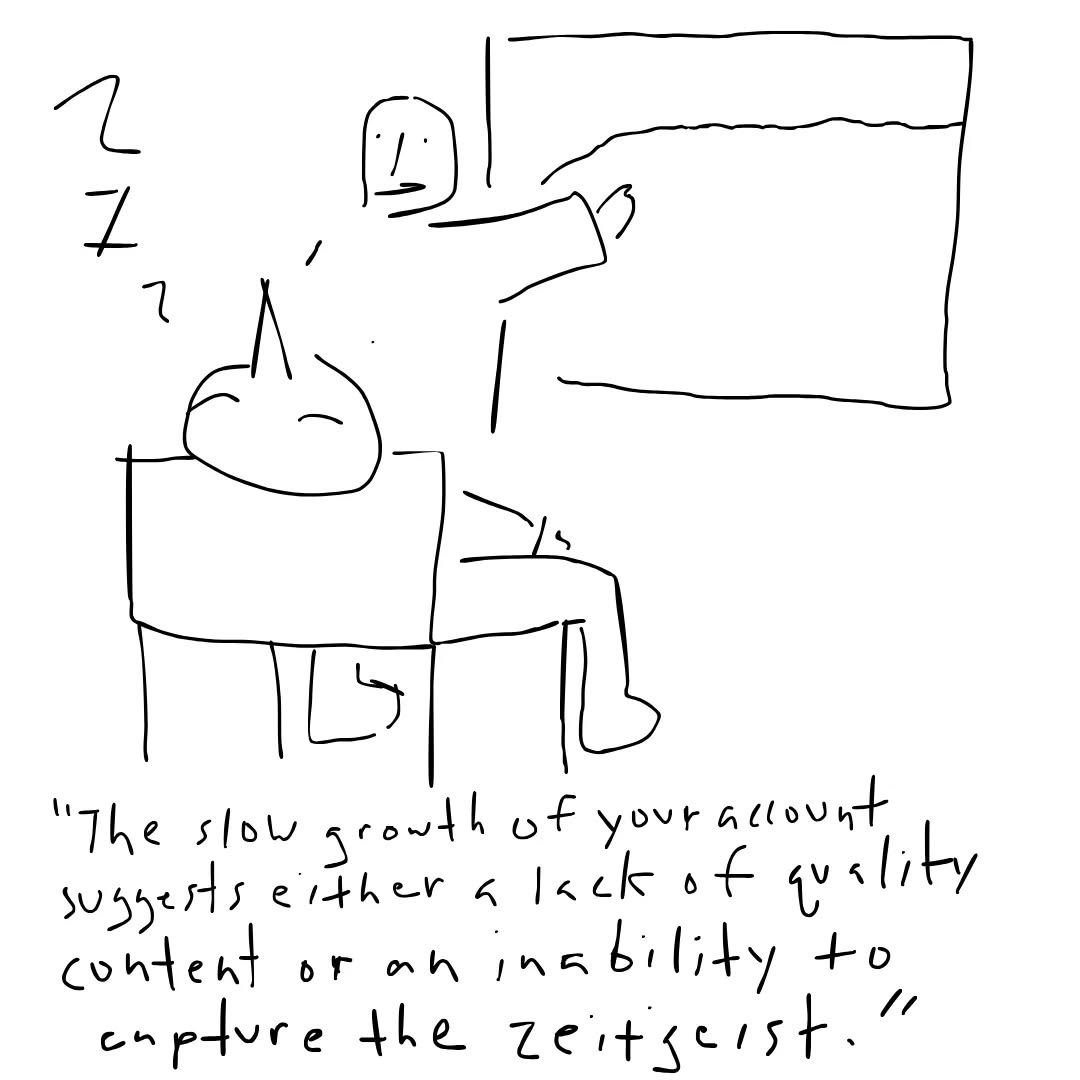 Z
Z
Z
"The slow growth of your account
suggests either a lack of quality
content or an inability to
capture the zeitgeist."